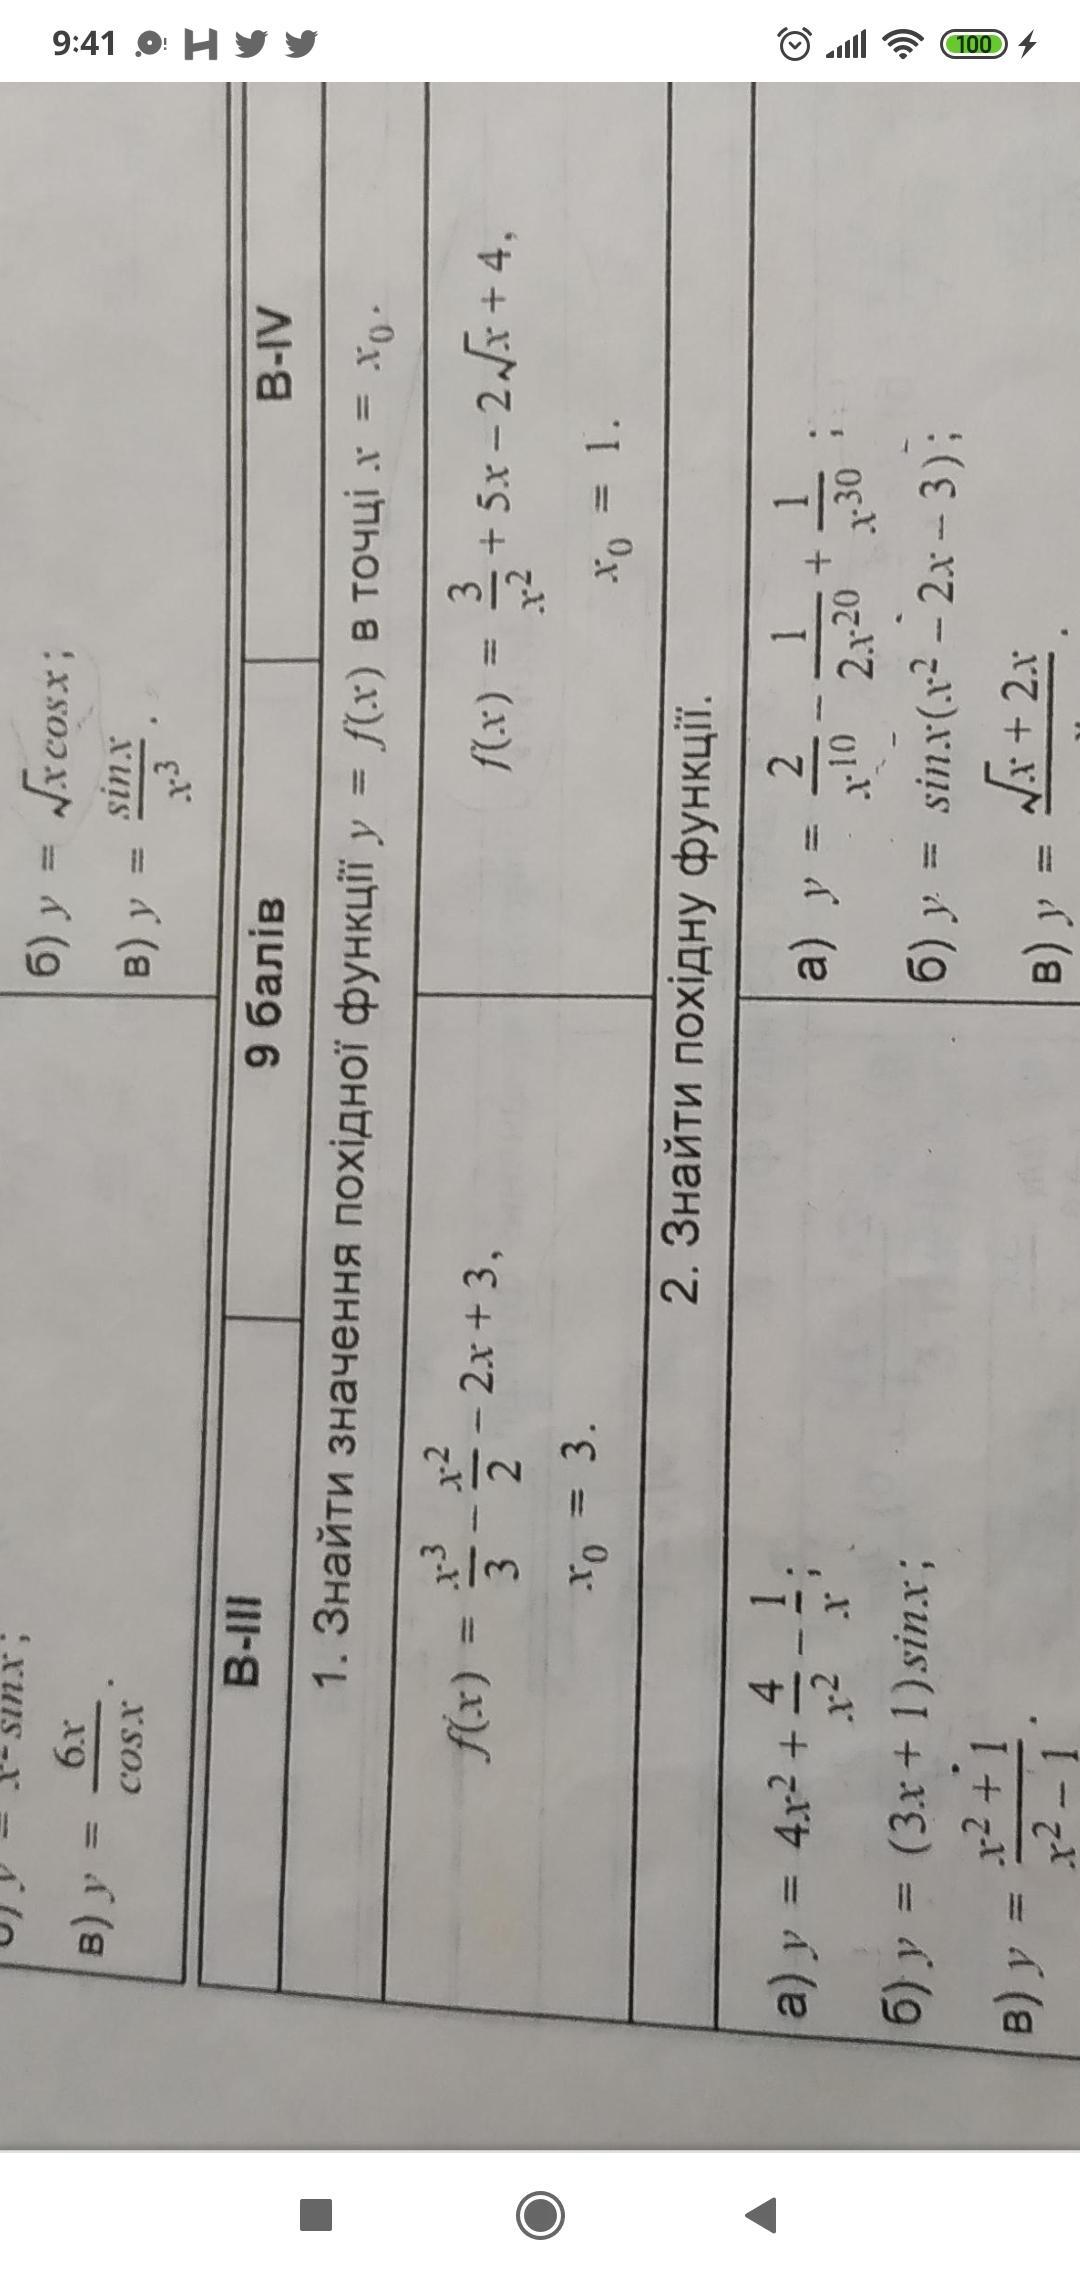 9:41
100
y = x² sinx;
в) y = 6x/cosx.
б) y = √x cosx;
в) y = sinx/x³.
В-III 9 балів В-IV
1. Знайти значення похідної функції y = f(x) в точці x = x₀.
f(x) = x³/3 − x²/2 − 2x + 3,
x₀ = 3.
f(x) = 3/x² + 5x − 2√x + 4,
x₀ = 1.
2. Знайти похідну функції.
а) y = 4x² + 4/x² − 1/x;
б) y = (3x + 1)sinx;
в) y = x² + 1/x² − 1.
а) y = 2/x¹⁰ − 1/2x²⁰ + 1/x³⁰;
б) y = sinx(x² − 2x − 3);
в) y = √x + 2x